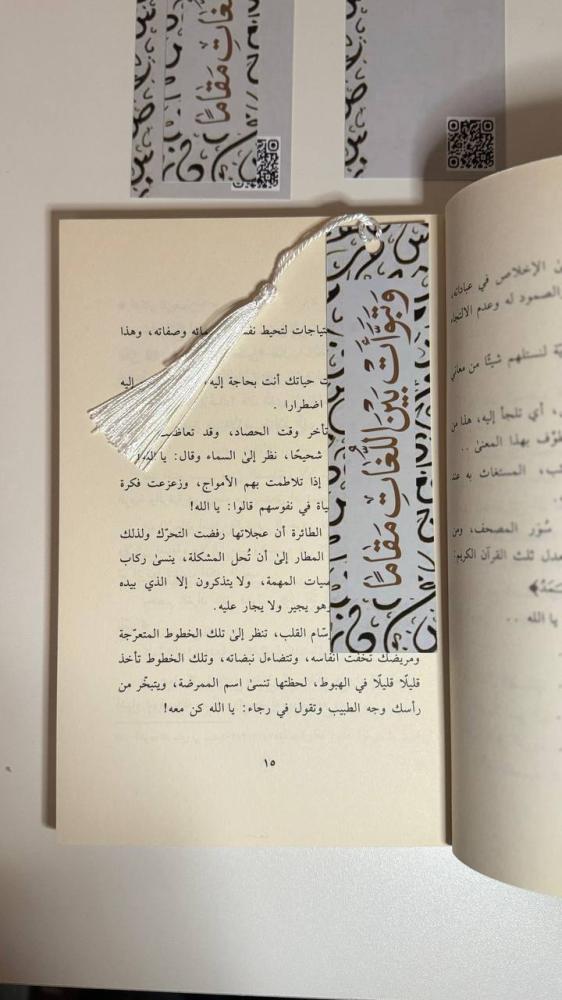 لغاتِ مَقَامًا
وَتبَوَّأَت بَيْنَ اللُّغَاتِ مَقَامًا
حتياجات لتحيط نفسك وصفاته، وهذا
حياتك أنت بحاجة إليه إليه
اضطرارا .
تأخر وقت الحصاد، وقد
شحيحًا، نظر إلى السماء وقال: يا الله
إذا تلاطمت بهم الأمواج، وزعزعت فكرة
في نفوسهم قالوا: يا الله!
الطائرة أن عجلاتها رفضت التحرّك ولذلك
المطار إلى أن تُحل المشكلة، ينسى ركاب
المهمة، ولا يتذكرون إلا الذي بيده
يجير ولا يجار عليه.
القلب، تنظر إلى تلك الخطوط المتعرّجة
ومريضك تخفت أنفاسه، وتتضاءل نبضاته، وتلك الخطوط تأخذ
قليلًا قليلًا في الهبوط، لحظتها تنسى اسم الممرضة، ويتبخّر من
رأسك وجه الطبيب وتقول في رجاء: يا الله كن معه!
١٥
الإخلاص في عباداته،
والصمود له وعدم الالتجاء
لنستلهم شيئًا من معاني
أي تلجأ إليه، هذا من
بهذا المعنى ..
المستغاث به عند
سُوَر المصحف، ومن
ثلث القرآن الكريم:
يا الله ..